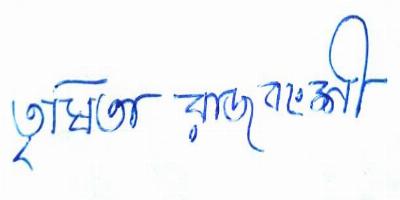 তৃষিতা রাজবংশী